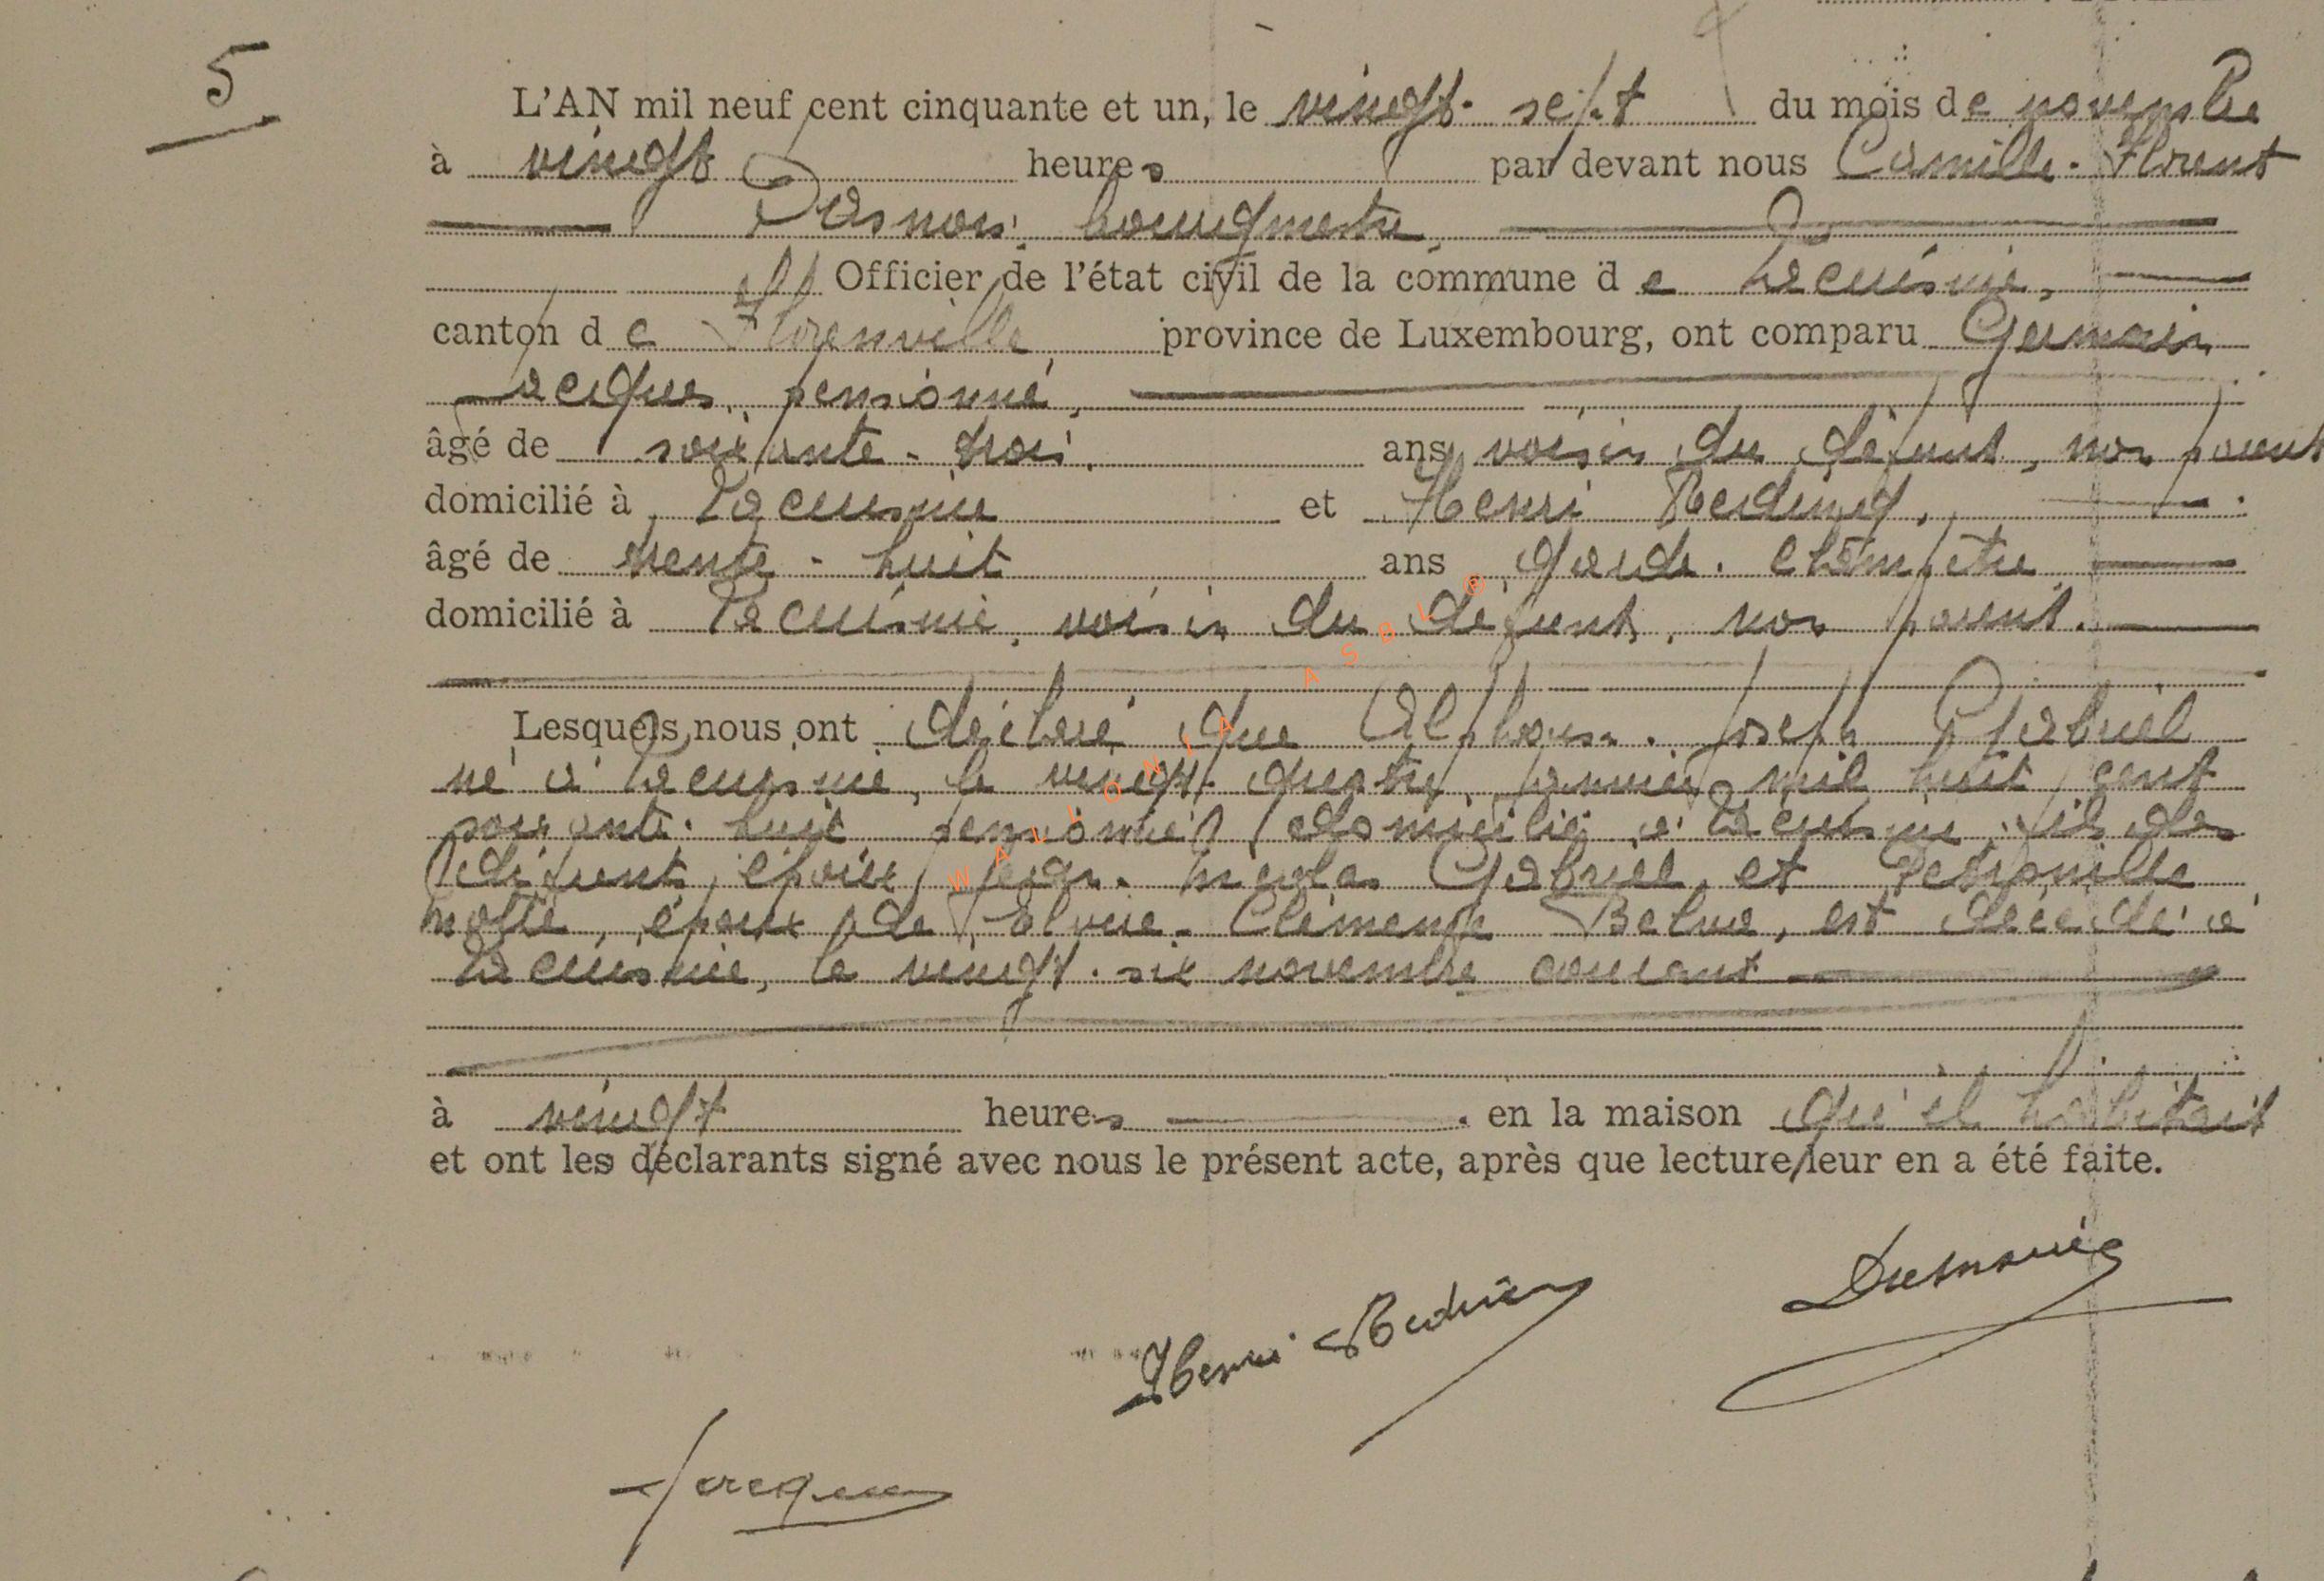 5
L'AN mil neuf cent cinquante et un, le vingt-sept du mois de novembre
à vingt heures par devant nous Camille-Florent
bourgmestre,
Officier de l'état civil de la commune de Lacuisine,
canton de Florenville, province de Luxembourg, ont comparu Germain
Jacques, pensionné,
âgé de soixante-trois ans, voisin du défunt, non parent
domicilié à Lacuisine et Henri Reiding,
âgé de trente-huit ans garde-champêtre
domicilié à Lacuisine, voisin du défunt, non parent.
Lesquels nous ont déclaré que Alphonse-Joseph Gabriel
né à Lacuisine, le vingt-quatre janvier mil huit cent
soixante-huit, pensionné, domicilié à Lacuisine, fils des
défunts époux Jean-Nicolas Gabriel et Pétronille
époux de Clémence est décédé à
Lacuisine, le vingt-six novembre courant
à vingt heures en la maison qu'il habitait
et ont les déclarants signé avec nous le présent acte, après que lecture leur en a été faite.
Henri Reiding
Jacques
WALLONIA ASBL ®